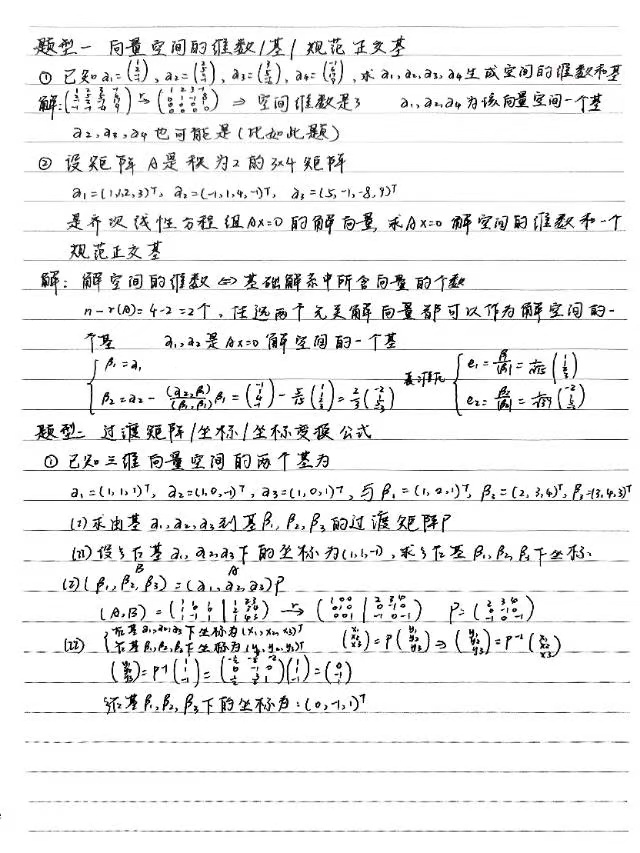 题型一 向量空间的维数/基/规范正交基
① 已知a₁=(1 2 -1), a₂=(2 5 -1), a₃=(3 5 -4), a₄=, 求a₁,a₂,a₃,a₄生成空间的维数和基
解: → ⇒ 空间维数是3 a₁,a₂,a₄为该向量空间一个基
a₂,a₃,a₄也可能是(比如此题)
② 设矩阵A是秩为2的3×4矩阵
a₁=(1,1,2,3)ᵀ, a₂=(-1,1,4,-1)ᵀ, a₃=(5,-1,-8,9)ᵀ
是齐次线性方程组Ax=0的解向量,求Ax=0解空间的维数和一个
规范正交基
解: 解空间的维数⇔基础解系中所含向量的个数
n-r(A)=4-2=2个, 任选两个无关解向量都可以作为解空间的一
个基 a₁,a₂是Ax=0解空间的一个基
β₁=a₁
β₂=a₂-(a₂,β₁)/(β₁,β₁)β₁=(-1 1 4 -1)-5/15(1 1 2 3)=2/3(-2 1 5 -3) 单位化 e₁=β₁/|β₁|=1/√15(1 1 2 3)
e₂=β₂/|β₂|=1/√39(-2 1 5 -3)
题型二 过渡矩阵/坐标/坐标变换公式
① 已知三维向量空间的两个基为
a₁=(1,1,1)ᵀ, a₂=(1,0,-1)ᵀ, a₃=(1,0,1)ᵀ, 与β₁=(1,2,1)ᵀ, β₂=(2,3,4)ᵀ, β₃=(3,4,3)ᵀ
(1)求由基a₁,a₂,a₃到基β₁,β₂,β₃的过渡矩阵P
(2)设ξ在基a₁,a₂,a₃下的坐标为(1,1,-1), 求ξ在基β₁,β₂,β₃下坐标.
B A
(1)(β₁,β₂,β₃)=(a₁,a₂,a₃)P
(A,B)=(1 1 1 | 1 2 3 → (1 0 0 | 2 3 4 0 1 0 | 0 -1 0 0 0 1 | -1 0 -1) P=(2 3 4 0 -1 0 -1 0 -1)
(2) 在基a₁,a₂,a₃下坐标为(x₁,x₂,x₃)ᵀ
在基β₁,β₂,β₃下坐标为(y₁,y₂,y₃)ᵀ (x₁ x₂ x₃)=P(y₁ y₂ y₃)⇒(y₁ y₂ y₃)=P⁻¹(x₁ x₂ x₃)
(y₁ y₂ y₃)=P⁻¹(1 1 -1)= (1 1 -1)=(0 -1 1)
ξ在基β₁,β₂,β₃下的坐标为:(0,-1,1)ᵀ